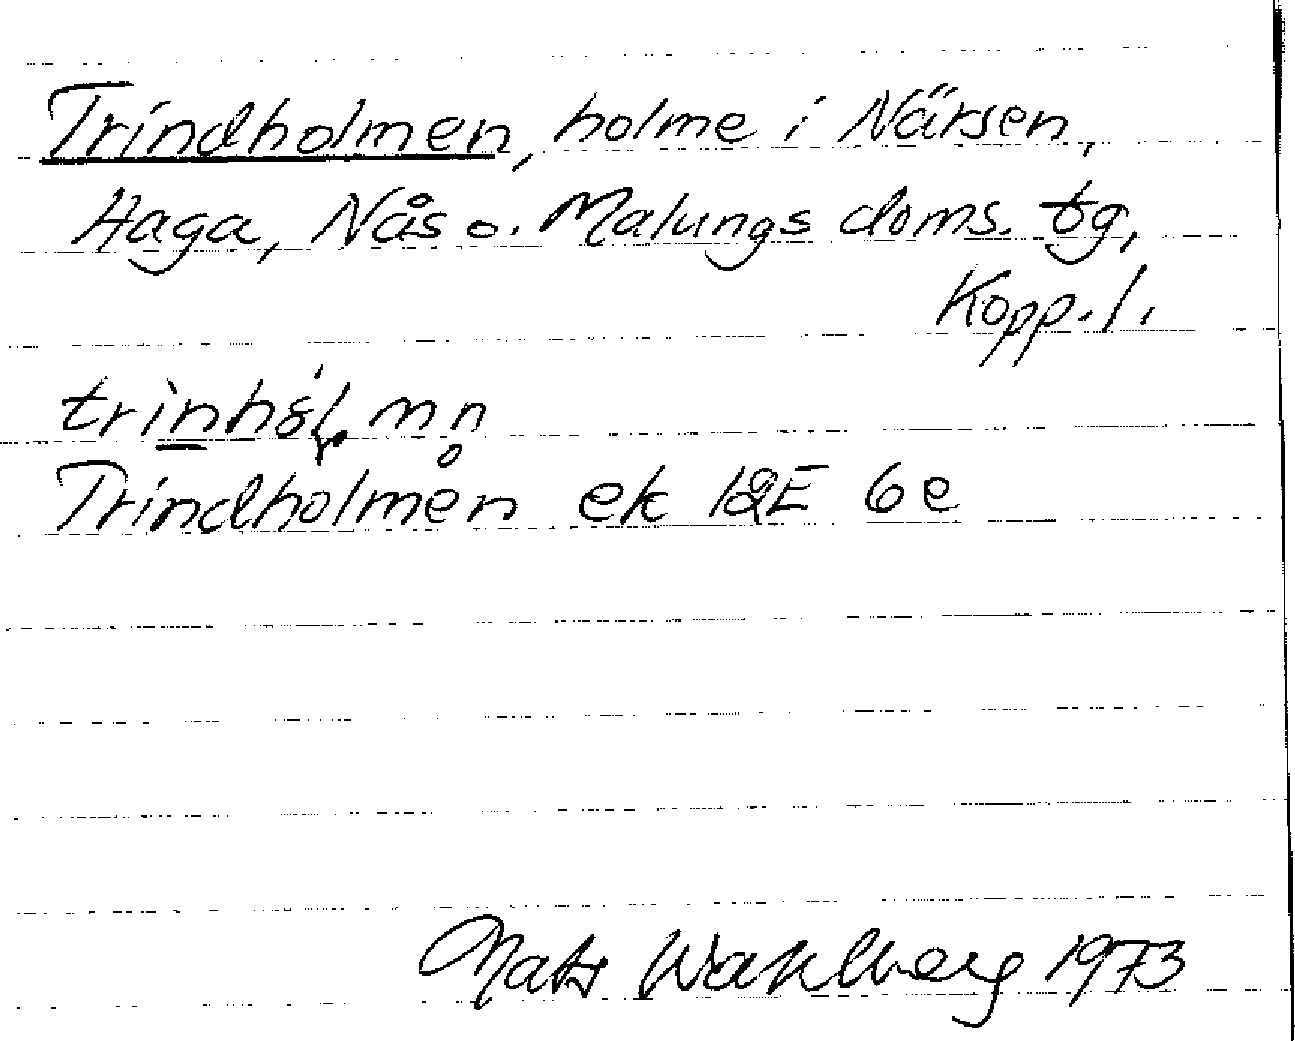 Trindholmen, holme i Närsen,
Haga, Nås o. Malungs doms. tg,
Kopp. l.
Trindholmen ek 12E 6e
Mats Wahlberg 1973